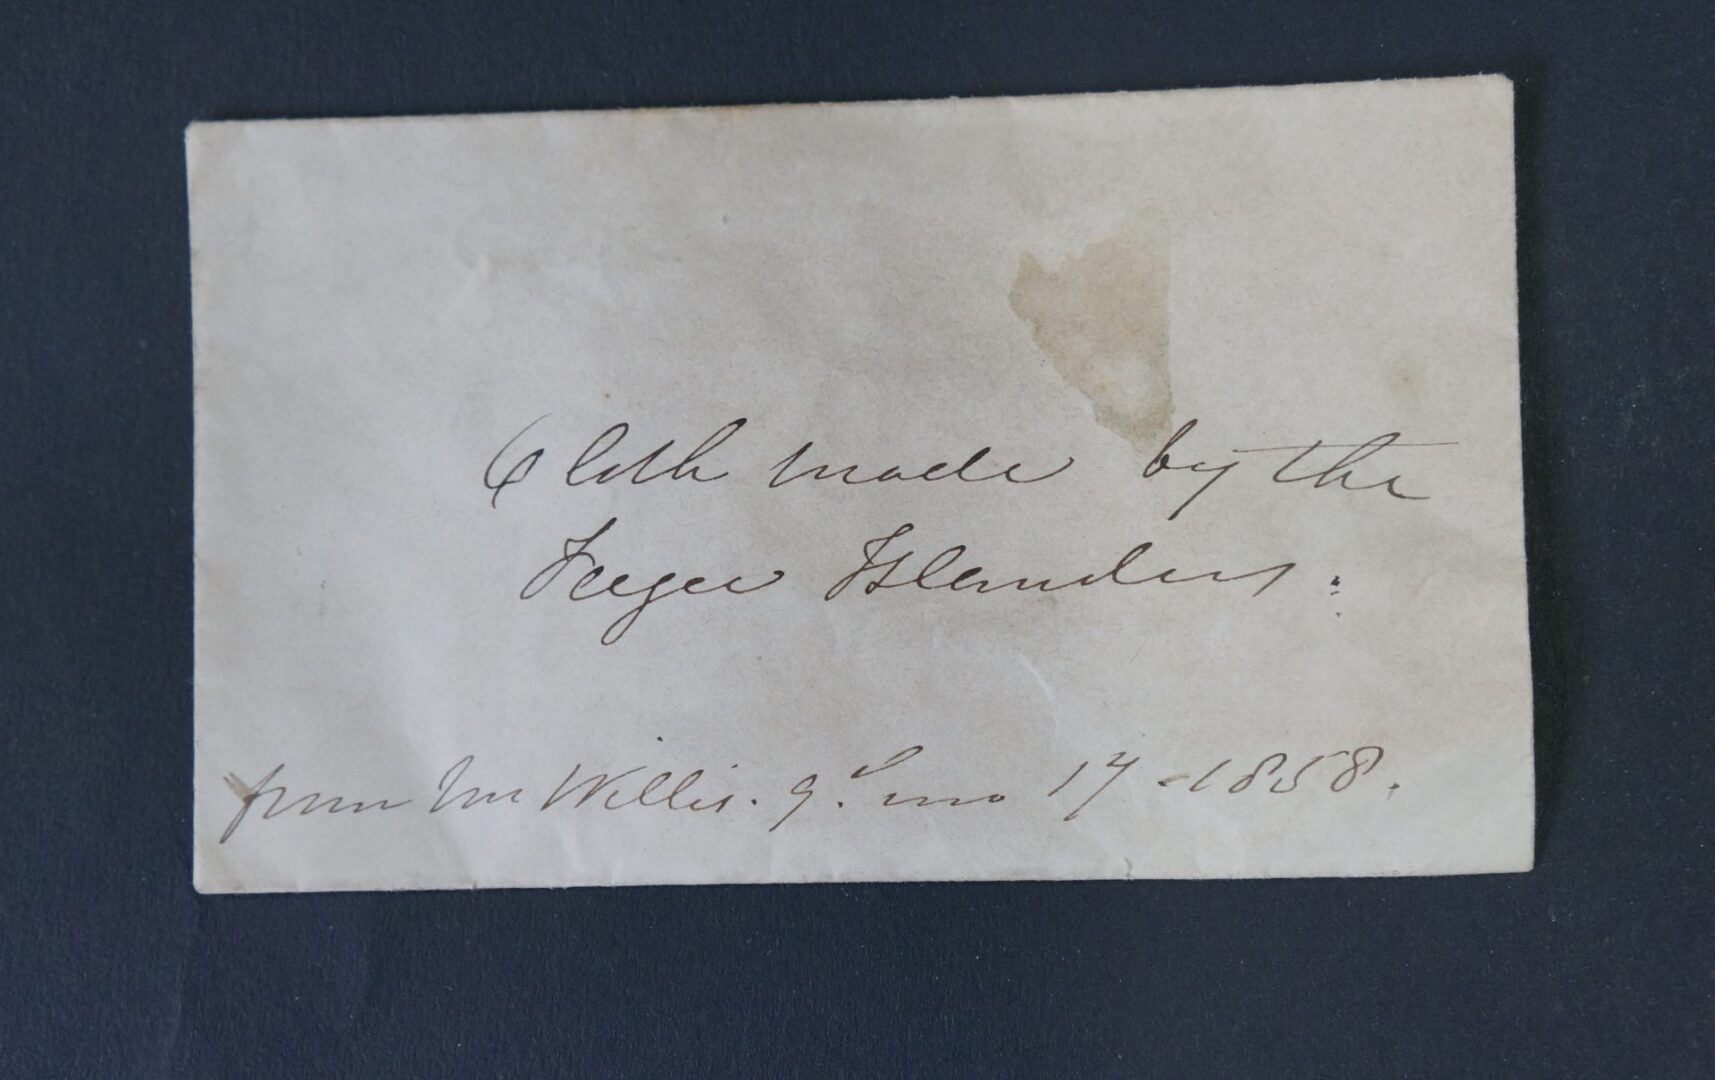 Cloth made by the
Feegee Islanders.
from Mr Willis. 9. mo 17 - 1858.